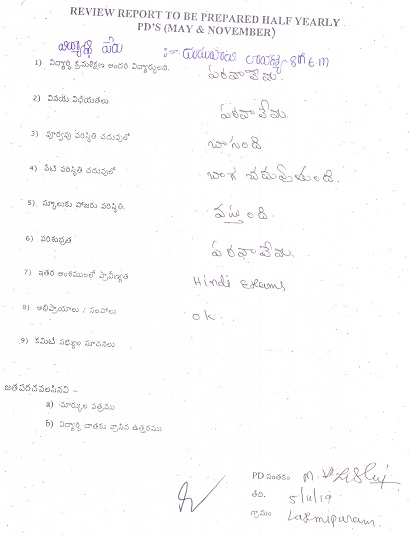 REVIEW REPORT TO BE PREPARED HALF YEARLY
PD'S (MAY & NOVEMBER)
విద్యార్థి పేరు :- 8th E.M
1) విద్యార్థి క్రమశిక్షణ అందరి విద్యార్థులతో. పరవాలేదు.
2) వినయ విధేయతలు పరవాలేదు.
3) పూర్వపు పరిస్థితి చదువులో బాగుంది
4) నేటి పరిస్థితి చదువులో బాగ చదువుతుంది.
5) స్కూలుకు హాజరు పరిస్థితి. వస్తుంది.
6) పరిశుభ్రత పరవాలేదు.
7) ఇతర అంశములలో ప్రావీణ్యత Hindi Exams
8) అభిప్రాయాలు / సలహాలు ok.
9) కమిటీ సభ్యుల సూచనలు
జతపరచవలసినవి :-
a) మార్కుల పత్రము
b) విద్యార్థి దాతకు వ్రాసిన ఉత్తరము
PD సంతకం
తేది. 5/11/19
గ్రామం Laxmipuram